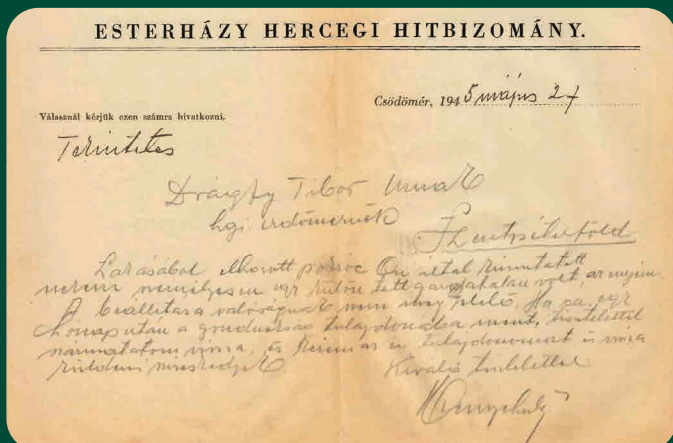 ESTERHÁZY HERCEGI HITBIZOMÁNY.
Csödömér, 1945 május 27
Válasznál kérjük ezen számra hivatkozni.
Tekintetes
Drágffy Tibor Urnak
hgi. erdőmérnök
Szentpéterföld
Lakásából elhozott pokróc Ön által kimutatott
nekem személyesen egy tett gazdátlan volt, az enyém.
A beállítása valóságnak nem meg felelő. Ha pa. egy
hónap után a gondnokság tulajdonába ment, tisztelettel
származtatom vissza, és kérem az én tulajdonomat is vissza
küldeni szíveskedjék.
Kiváló tisztelettel